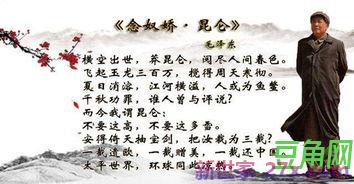 《念奴娇·昆仑》
毛泽东
横空出世，莽昆仑，阅尽人间春色。
飞起玉龙三百万，搅得周天寒彻。
夏日消溶，江河横溢，人或为鱼鳖。
千秋功罪，谁人曾与评说?
而今我谓昆仑:
不要这高，不要这多雪。
安得倚天抽宝剑，把汝裁为三截?
一截遗欧，一截赠美，一截还中
太平世界，环球同此
豆角网